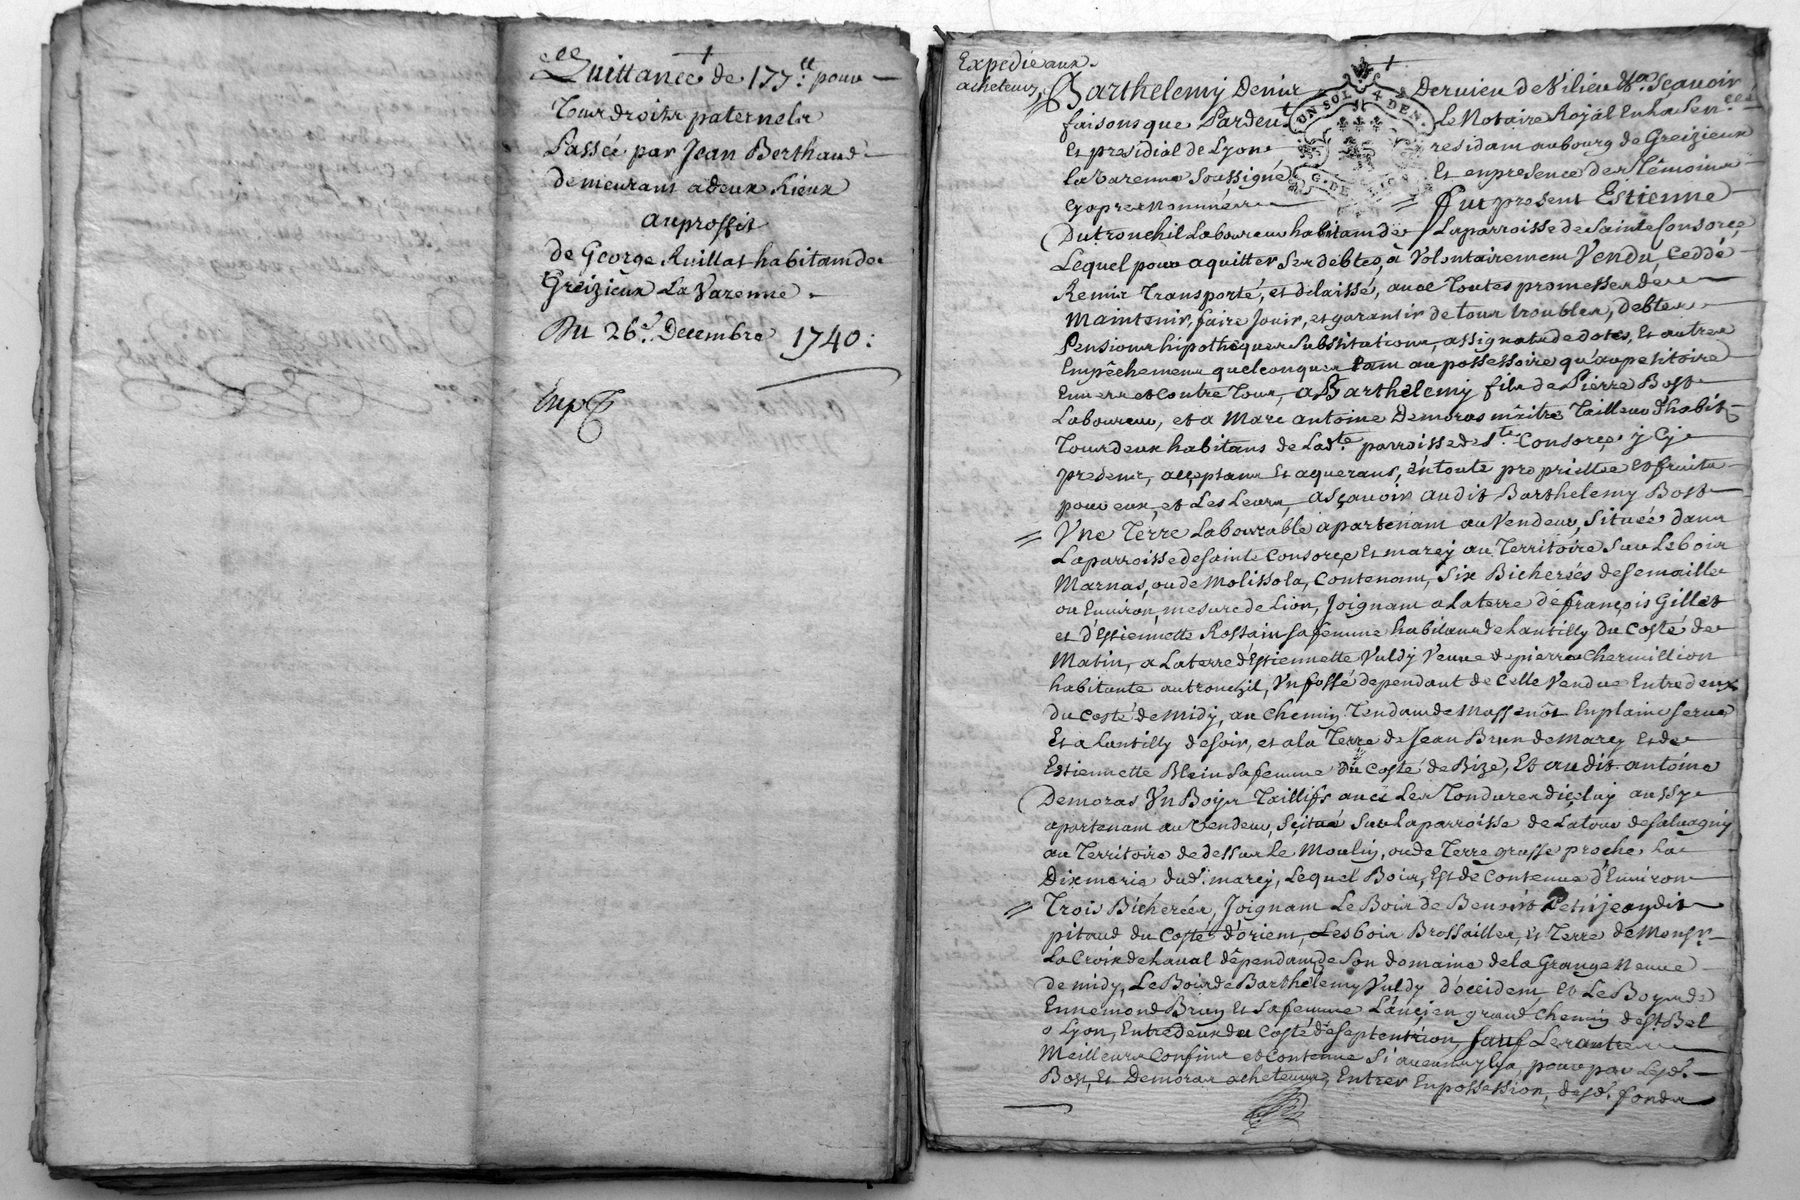 Quittance de 177ll pour
Tous droits paternels
Passée par Jean Berthaud
demeurant a deux Lieux
au proffit
de George Ruillat habitant de
Greizieux La Varenne.
Du 26e. Decembre 1740.
Exp
Expedié aux
acheteurs
UN SOL 4 DEN.
G. DE LYON
Barthelemy Denis Dervieu de Vilieu Sr. Scavoir
faisons que Pardevt. Le Notaire Royal En La Sen.cée
Et presidial de Lyon residant au bourg de Greizieux
La Varenne Soussigné Et en presence des Témoins
Cy apres Nommés Fut present Estienne
Dutronchil Laboureur habitant de La parroisse de Sainte Consorce,
Lequel pour aquitter Ses debtes, à Volontairement Vendu, Ceddé
Remis Transporté, et delaissé, avec Toutes promesses de
Maintenir, faire Jouir, et garantir de tous troubles, debtes
Pensions hipotheques Substitutions, assignats de dotes, Et autres
Empêchemens quelconques tant au possessoire qu'au petitoire
Envers et Contre Tous, a Barthelemy fils de Pierre Bost
Laboureur, et a Marc antoine Demoras mâitre Tailleur d'habits
Tous deux habitans de Lad.te parroisse de Ste. Consorce, y Cy
presens, acceptans Et aquerans, en toute proprietée et fruits
pour eux, et Les Leurs, asçavoir audit Barthelemy Bost
Une Terre Labourable apartenant au Vendeur, Située dans
La parroisse de Sainte Consorce, Et marcy au Territoire Sur Le bois
Marnas, ou de Molissola, Contenant, Six Bicherées de Semaille
ou Environ, mesure de Lion, Joignant a La terre de françois Gillet
et d'Estiennette Rossain Sa femme habitans de Lantilly Du Costé de
Matin, a La terre d'Estiennette Vuldy Veuve de pierre Chermillion
habitante au tronchil, Un fossé dependant de Celle Vendue Entre deux
du Costé de Midy, au Chemin Tendant de Massenôt En plaine Serve
Et a Lantilly de Soir, et a la Terre de Jean Brun de Marcy Et de
Estiennette Blein Sa femme du Costé de Bize, Et audit antoine
Demoras Un Boys Taillifs avec Les Tondures d'iceluy aussy
apartenant au Vendeur, Scitué Sur La parroisse de La tour de Salvagny
au Territoire de dessus Le Moulin, ou de Terre grasse proche La
Dixmerie dud. marcy, Lequel Bois, Est de Contenue d'Environ
Trois Bicherées, Joignant Le Bois de Benoist Petitjean dit
pitaud du Costé d'orient, Les bois Brossailles, Et Terre de Monsr.
La Croix de Laval dépendant de Son domaine de la Grange Neuve
de midy, Le Bois de Barthelemy Vuldy d'occident, et Le Boys de
Ennemond Brun Et Sa femme L'ancien grand Chemin de St. Bel
a Lyon, Entre deux du Costé de Septentrion, Sauf Les autres
Meilleurs Confins et Contenue Si aucuns y a, pour par Lesd.
Bost, Et Demoras acheteurs, Entrer En possession, desd. fonds